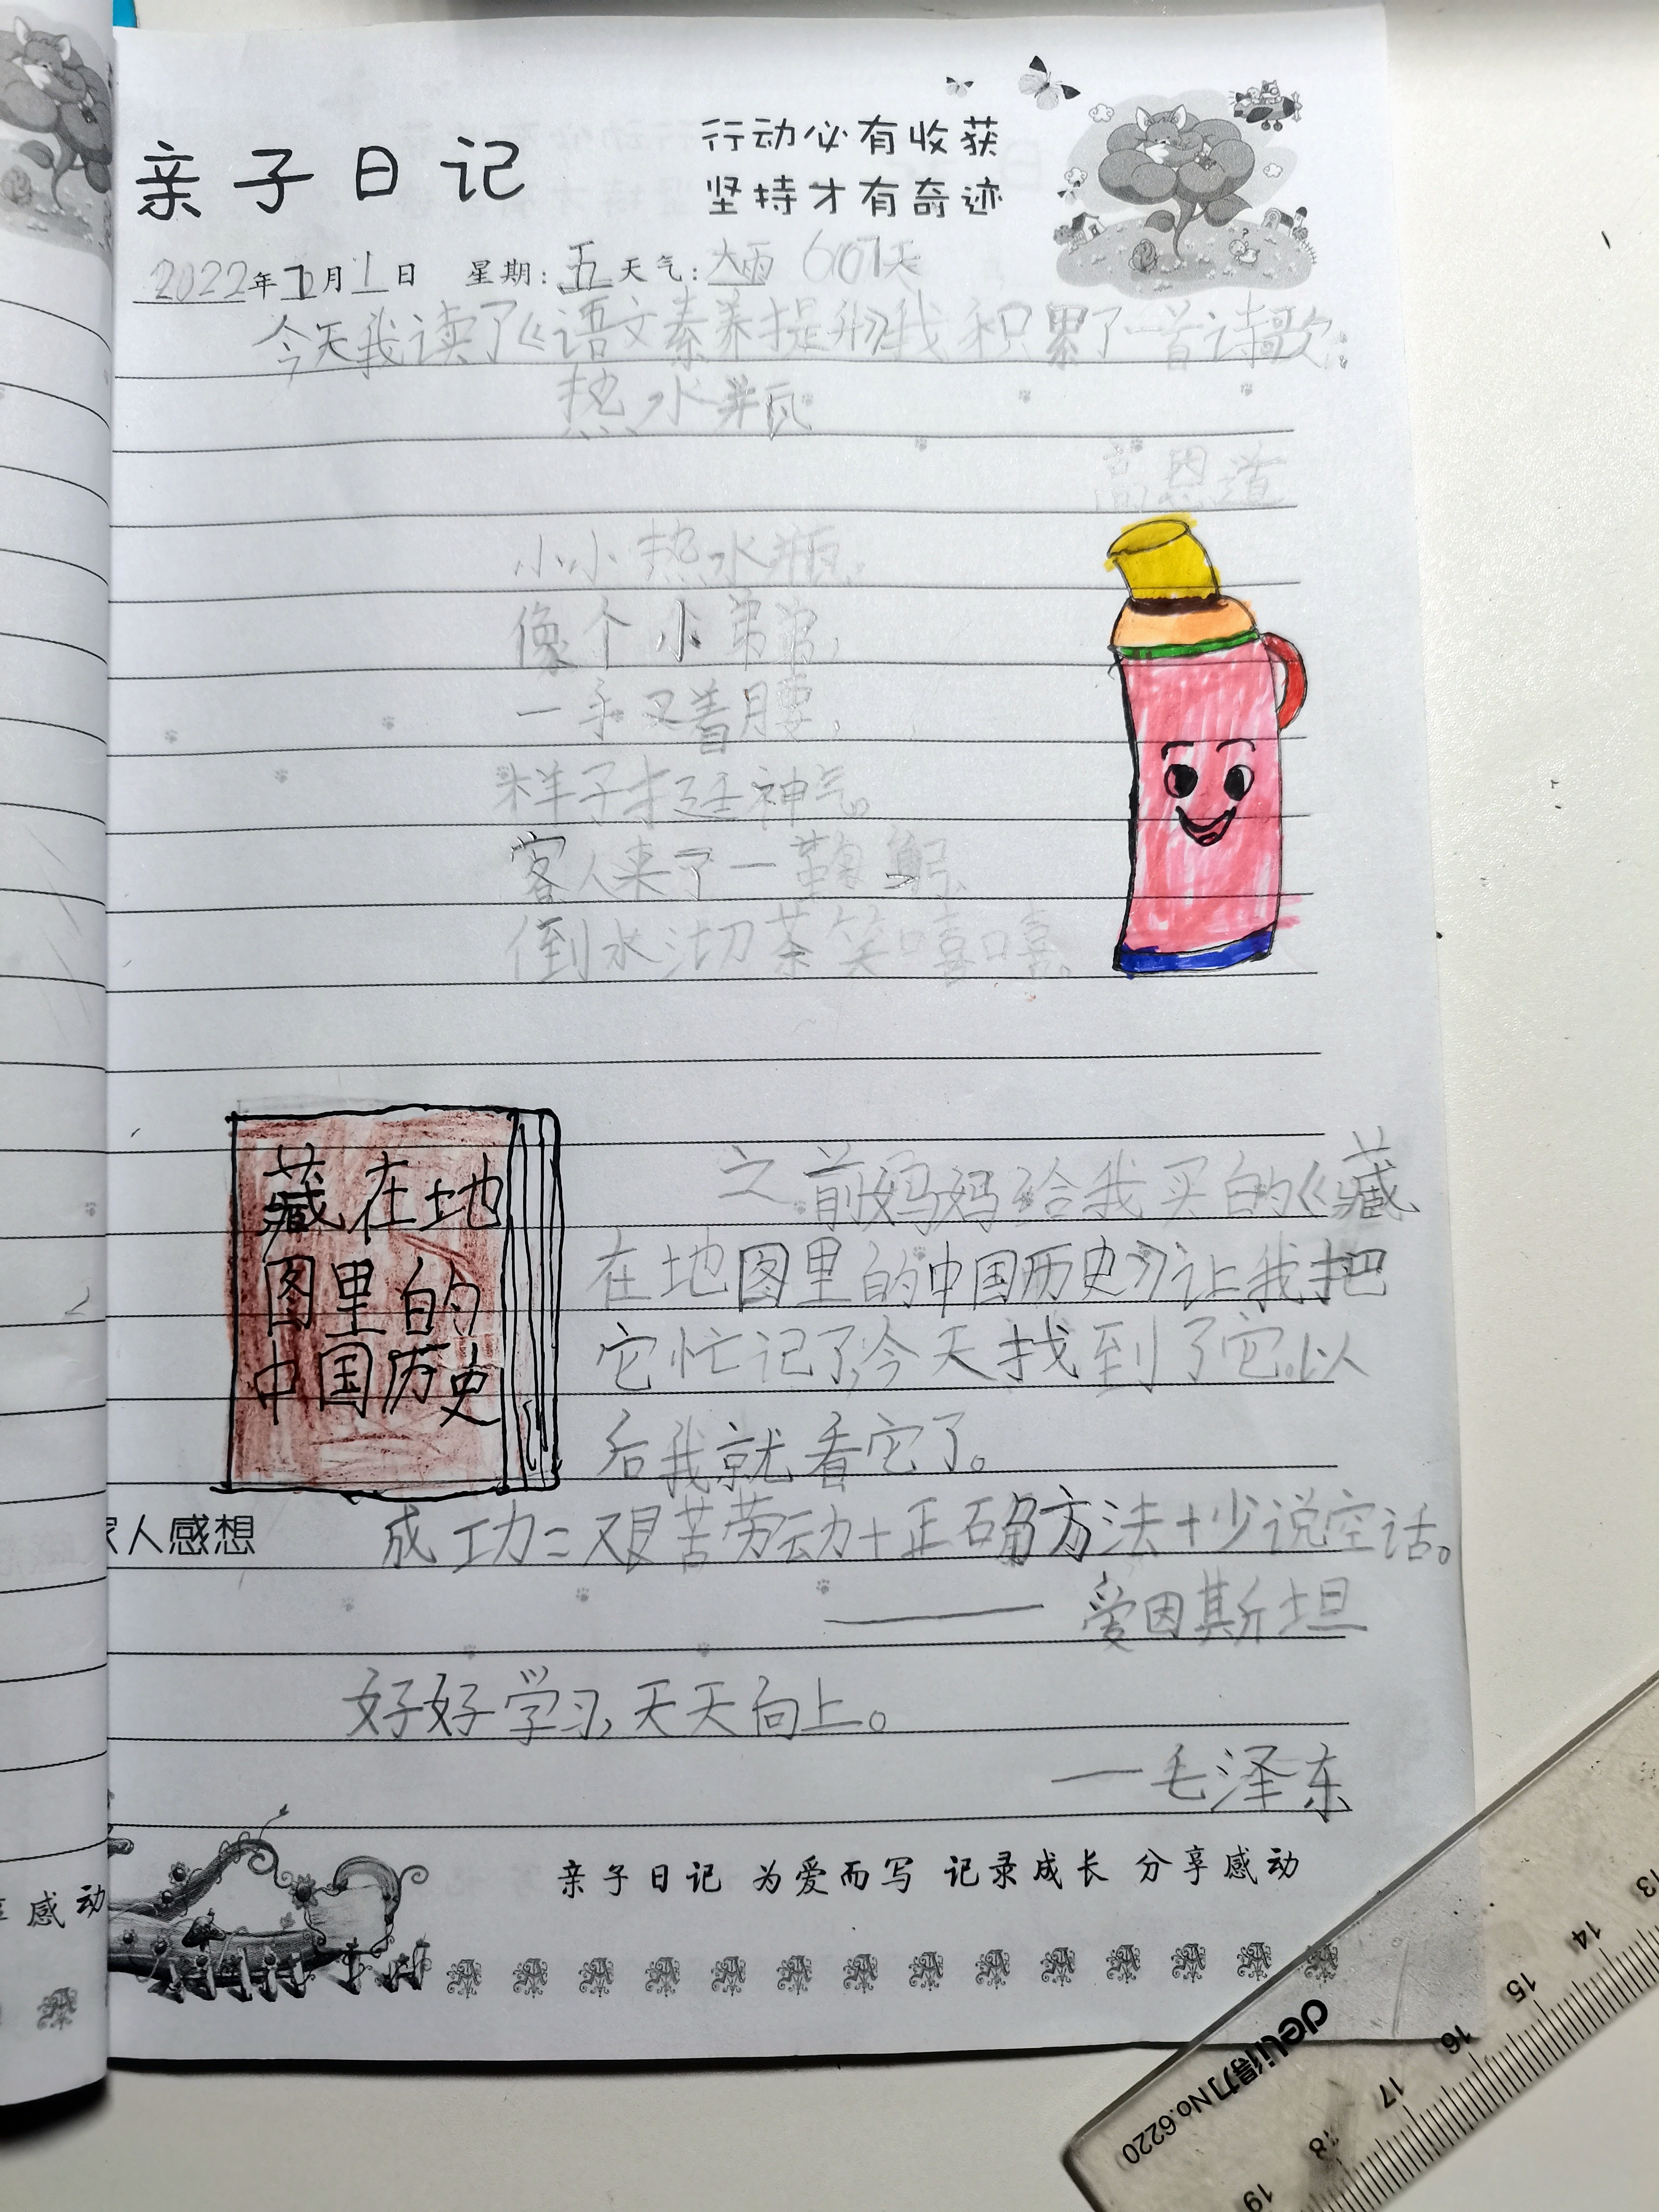 亲子日记
行动必有收获
坚持才有奇迹
2022年7月1日 星期:五 天气:大雨 607天
今天我读了《语文素养提升》我积累了一首诗歌:
热水瓶
高恩道
小小热水瓶,
像个小弟弟,
一手叉着腰,
样子挺神气。
客人来了一鞠躬,
倒水沏茶笑嘻嘻。
藏在地
图里的
中国历史
之前妈妈给我买的《藏
在地图里的中国历史》让我把
它忙记了,今天找到了它。以
后我就看它了。
家人感想 成功=艰苦劳动+正确方法+少说空话。
——爱因斯坦
好好学习,天天向上。
—毛泽东
亲子日记 为爱而写 记录成长 分享感动
享感动
deli得力 No.6220
13
14
15
16
17
18
19